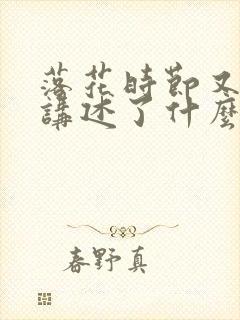 落花時節又
講述了什麼
春野真